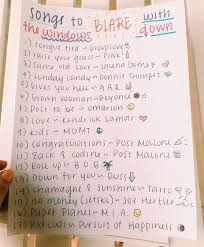 Songs to BLARE with
the windows down
1) tongue tied - Grouplove
2) raise your glass - P!nk
3) same old love - Selena Gomez
4) Sunday candy - Donnie Trumpet
5) gives you hell - A.A.R.
6) grown woman - Beyoncé
7) Post to be - Omarion
8) love - Kendrick Lamar
9) kids - MGMT
10) congratulations - Post Malone
11) Zack & codine - Post Malone
12) Roll up - B.O.B
13) Down for you - Russ
14) champagne & sunshine - Tarro
15) no money
16) Paper Planes - M.I.A.
17) Kid Cudi - Pursuit of Happiness